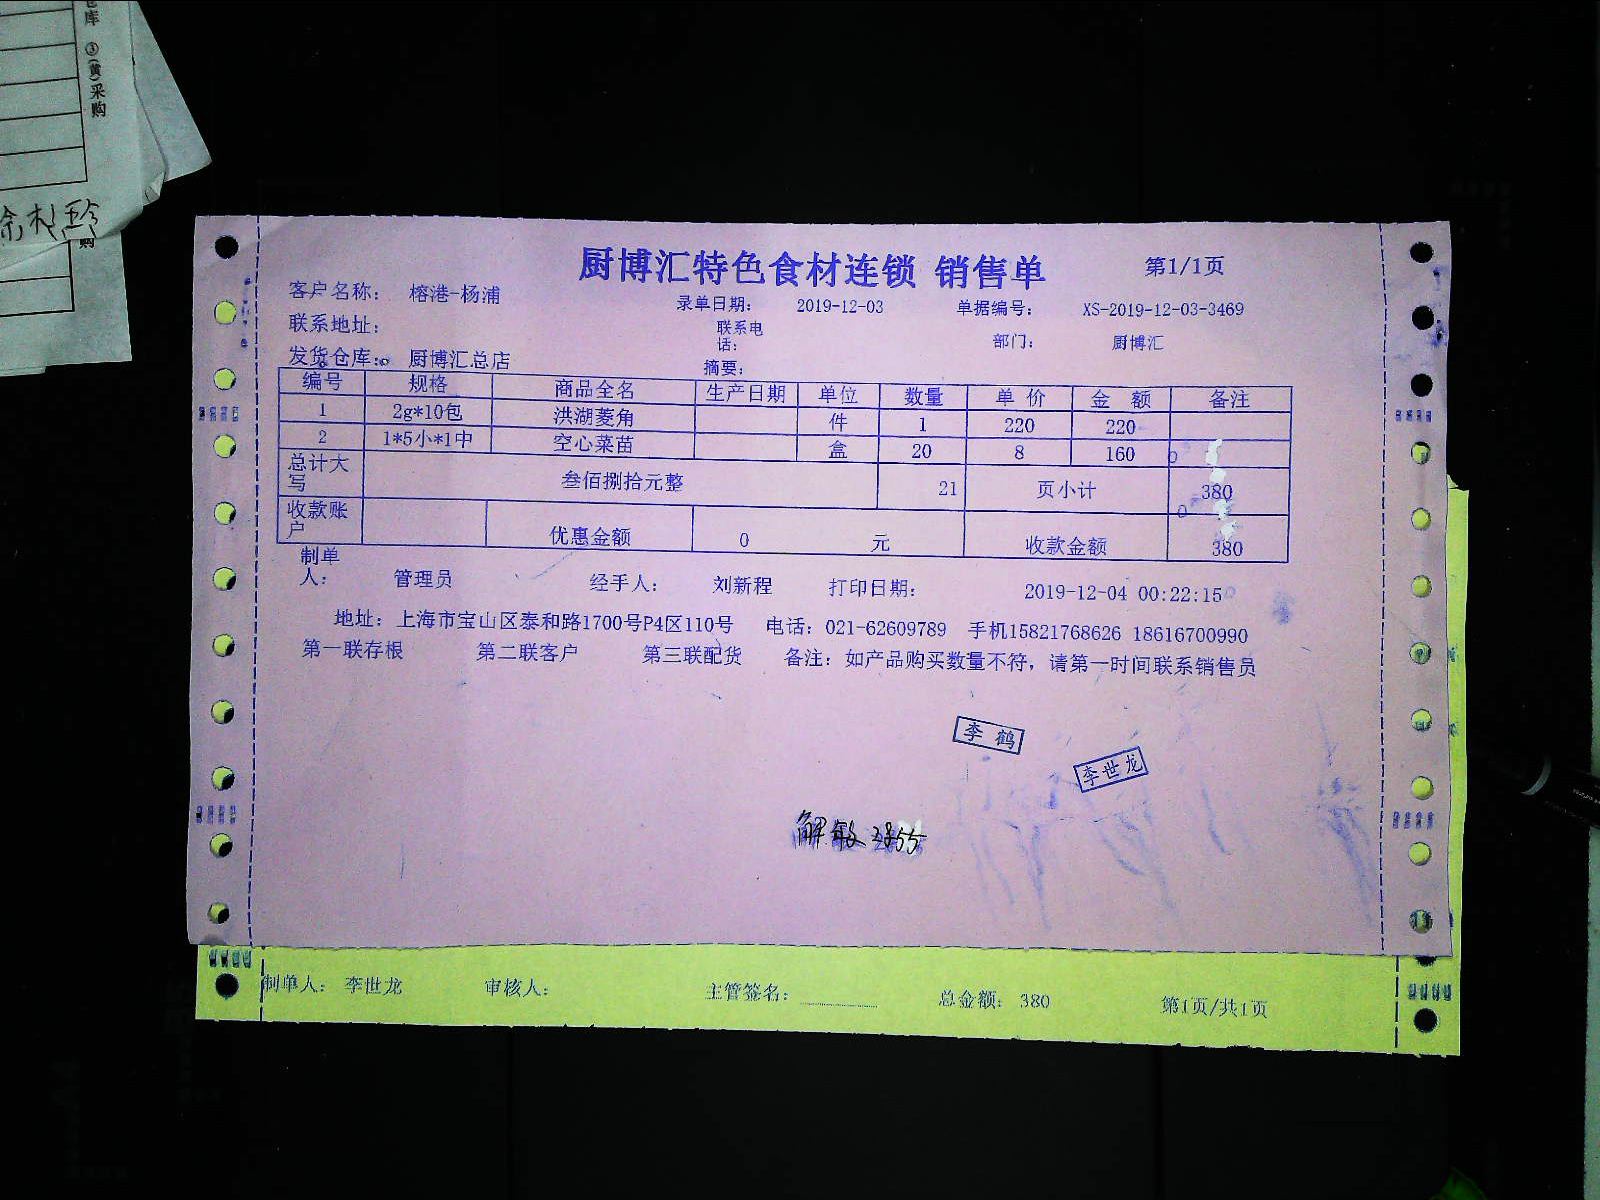 ③(黄)采购
厨博汇特色食材连锁 销售单 第1/1页
客户名称: 榕港-杨浦 录单日期: 2019-12-03 单据编号: XS-2019-12-03-3469
联系地址: 联系电话: 部门: 厨博汇
发货仓库: 厨博汇总店 摘要:
编号 规格 商品全名 生产日期 单位 数量 单 价 金 额 备注
1 2g*10包 洪湖菱角 件 1 220 220
2 1*5小*1中 空心菜苗 盒 20 8 160
总计大写 叁佰捌拾元整 21 页小计 380
收款账户 优惠金额 0 元 收款金额 380
制单人: 管理员 经手人: 刘新程 打印日期: 2019-12-04 00:22:15
地址: 上海市宝山区泰和路1700号P4区110号 电话: 021-62609789 手机15821768626 18616700990
第一联存根 第二联客户 第三联配货 备注: 如产品购买数量不符，请第一时间联系销售员
李 鹤
李世龙
解敏 2855
制单人: 李世龙 审核人: 主管签名: 总金额: 380 第1页/共1页